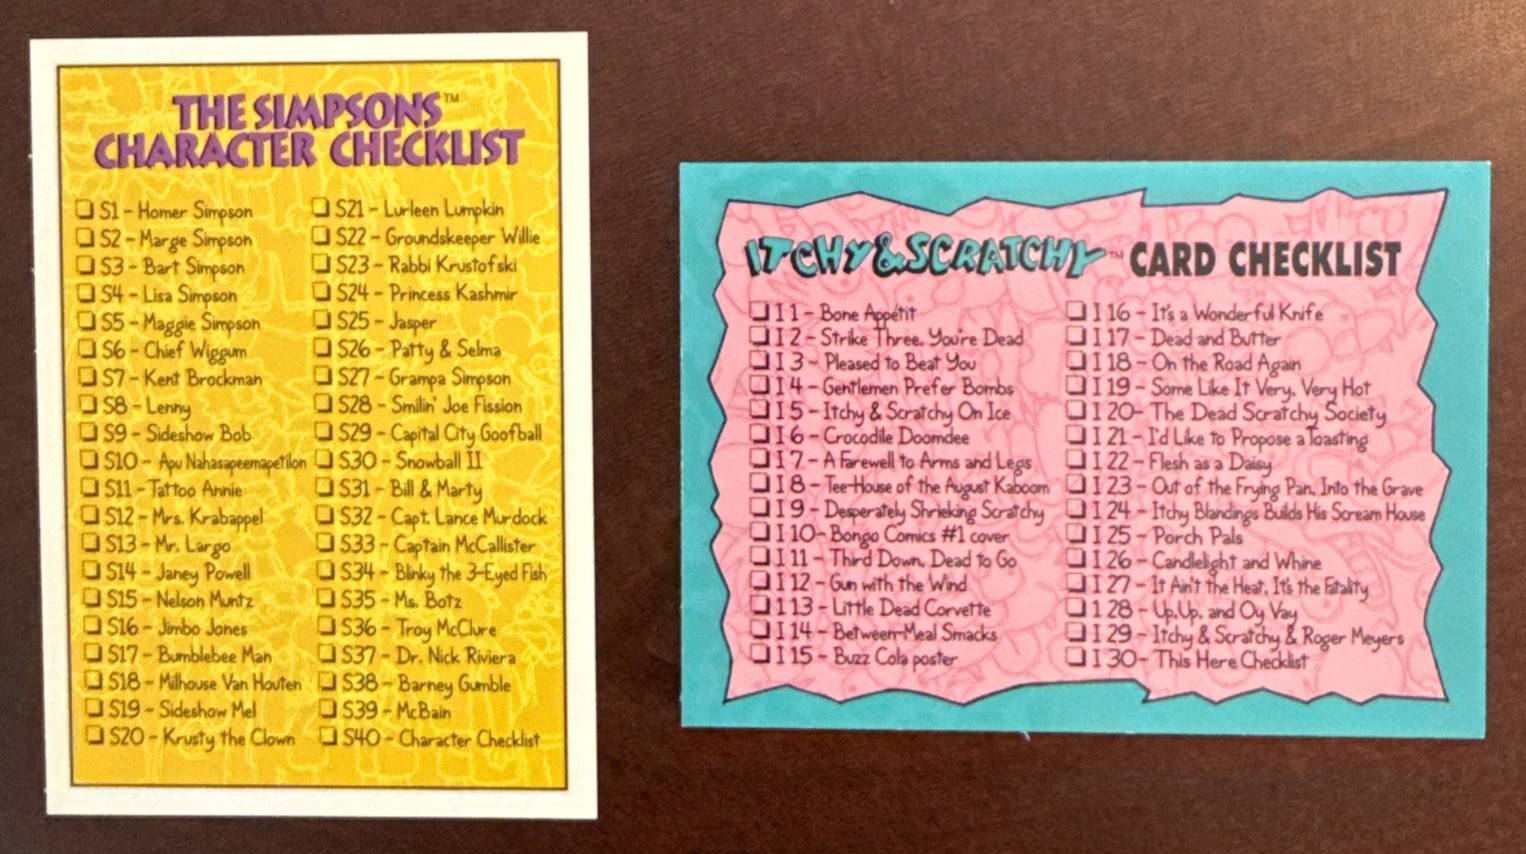 THE SIMPSONS™
CHARACTER CHECKLIST
S1 - Homer Simpson
S2 - Marge Simpson
S3 - Bart Simpson
S4 - Lisa Simpson
S5 - Maggie Simpson
S6 - Chief Wiggum
S7 - Kent Brockman
S8 - Lenny
S9 - Sideshow Bob
S10 - Apu Nahasapeemapetilon
S11 - Tattoo Annie
S12 - Mrs. Krabappel
S13 - Mr. Largo
S14 - Janey Powell
S15 - Nelson Muntz
S16 - Jimbo Jones
S17 - Bumblebee Man
S18 - Milhouse Van Houten
S19 - Sideshow Mel
S20 - Krusty the Clown
S21 - Lurleen Lumpkin
S22 - Groundskeeper Willie
S23 - Rabbi Krustofski
S24 - Princess Kashmir
S25 - Jasper
S26 - Patty & Selma
S27 - Grampa Simpson
S28 - Smilin' Joe Fission
S29 - Capital City Goofball
S30 - Snowball II
S31 - Bill & Marty
S32 - Capt. Lance Murdock
S33 - Captain McCallister
S34 - Blinky the 3-Eyed Fish
S35 - Ms. Botz
S36 - Troy McClure
S37 - Dr. Nick Riviera
S38 - Barney Gumble
S39 - McBain
S40 - Character Checklist
ITCHY & SCRATCHY™ CARD CHECKLIST
I 1 - Bone Appétit
I 2 - Strike Three, You're Dead
I 3 - Pleased to Beat You
I 4 - Gentlemen Prefer Bombs
I 5 - Itchy & Scratchy On Ice
I 6 - Crocodile Doomdee
I 7 - A Farewell to Arms and Legs
I 8 - Tee-House of the August Kaboom
I 9 - Desperately Shrieking Scratchy
I 10- Bongo Comics #1 cover
I 11 - Third Down, Dead to Go
I 12 - Gun with the Wind
I 13 - Little Dead Corvette
I 14 - Between-Meal Smacks
I 15 - Buzz Cola poster
I 16 - It's a Wonderful Knife
I 17 - Dead and Butter
I 18 - On the Road Again
I 19 - Some Like It Very, Very Hot
I 20- The Dead Scratchy Society
I 21 - I'd Like to Propose a Toasting
I 22 - Flesh as a Daisy
I 23 - Out of the Frying Pan, Into the Grave
I 24 - Itchy Blandings Builds His Scream House
I 25 - Porch Pals
I 26 - Candlelight and Whine
I 27 - It Ain't the Heat, It's the Fatality
I 28 - Up, Up, and Oy Vay
I 29 - Itchy & Scratchy & Roger Meyers
I 30- This Here Checklist